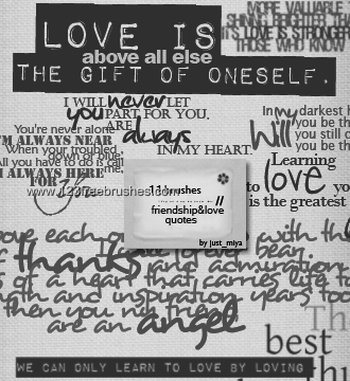 MORE VALUABLE T
SHINING BRIGHTER THA
IT'S LOVE IS STRONGER
THOSE WHO KNOW
LOVE IS
above all else
THE GIFT OF ONESELF.
I WILL never LET
you PART FOR YOU.
ARE always
IN MY HEART.
You're never alone
I'M ALWAYS NEAR
When your troubled,
down or blue,
All you have to do is call me,
I ALWAYS HERE
FOR
In my darkest h
Will you be th
you still c
you be th
Learning
to love you
is the greatest
www.123freebrushes.com
11 brushes
//
friendship&love
quotes
by just_miya
ove each with the
forever bear.
thanks and admiration.
of a heart that carries life to
and inspiration years too
then you my friend
are an angel
Th
best
thi
WE CAN ONLY LEARN TO LOVE BY LOVING